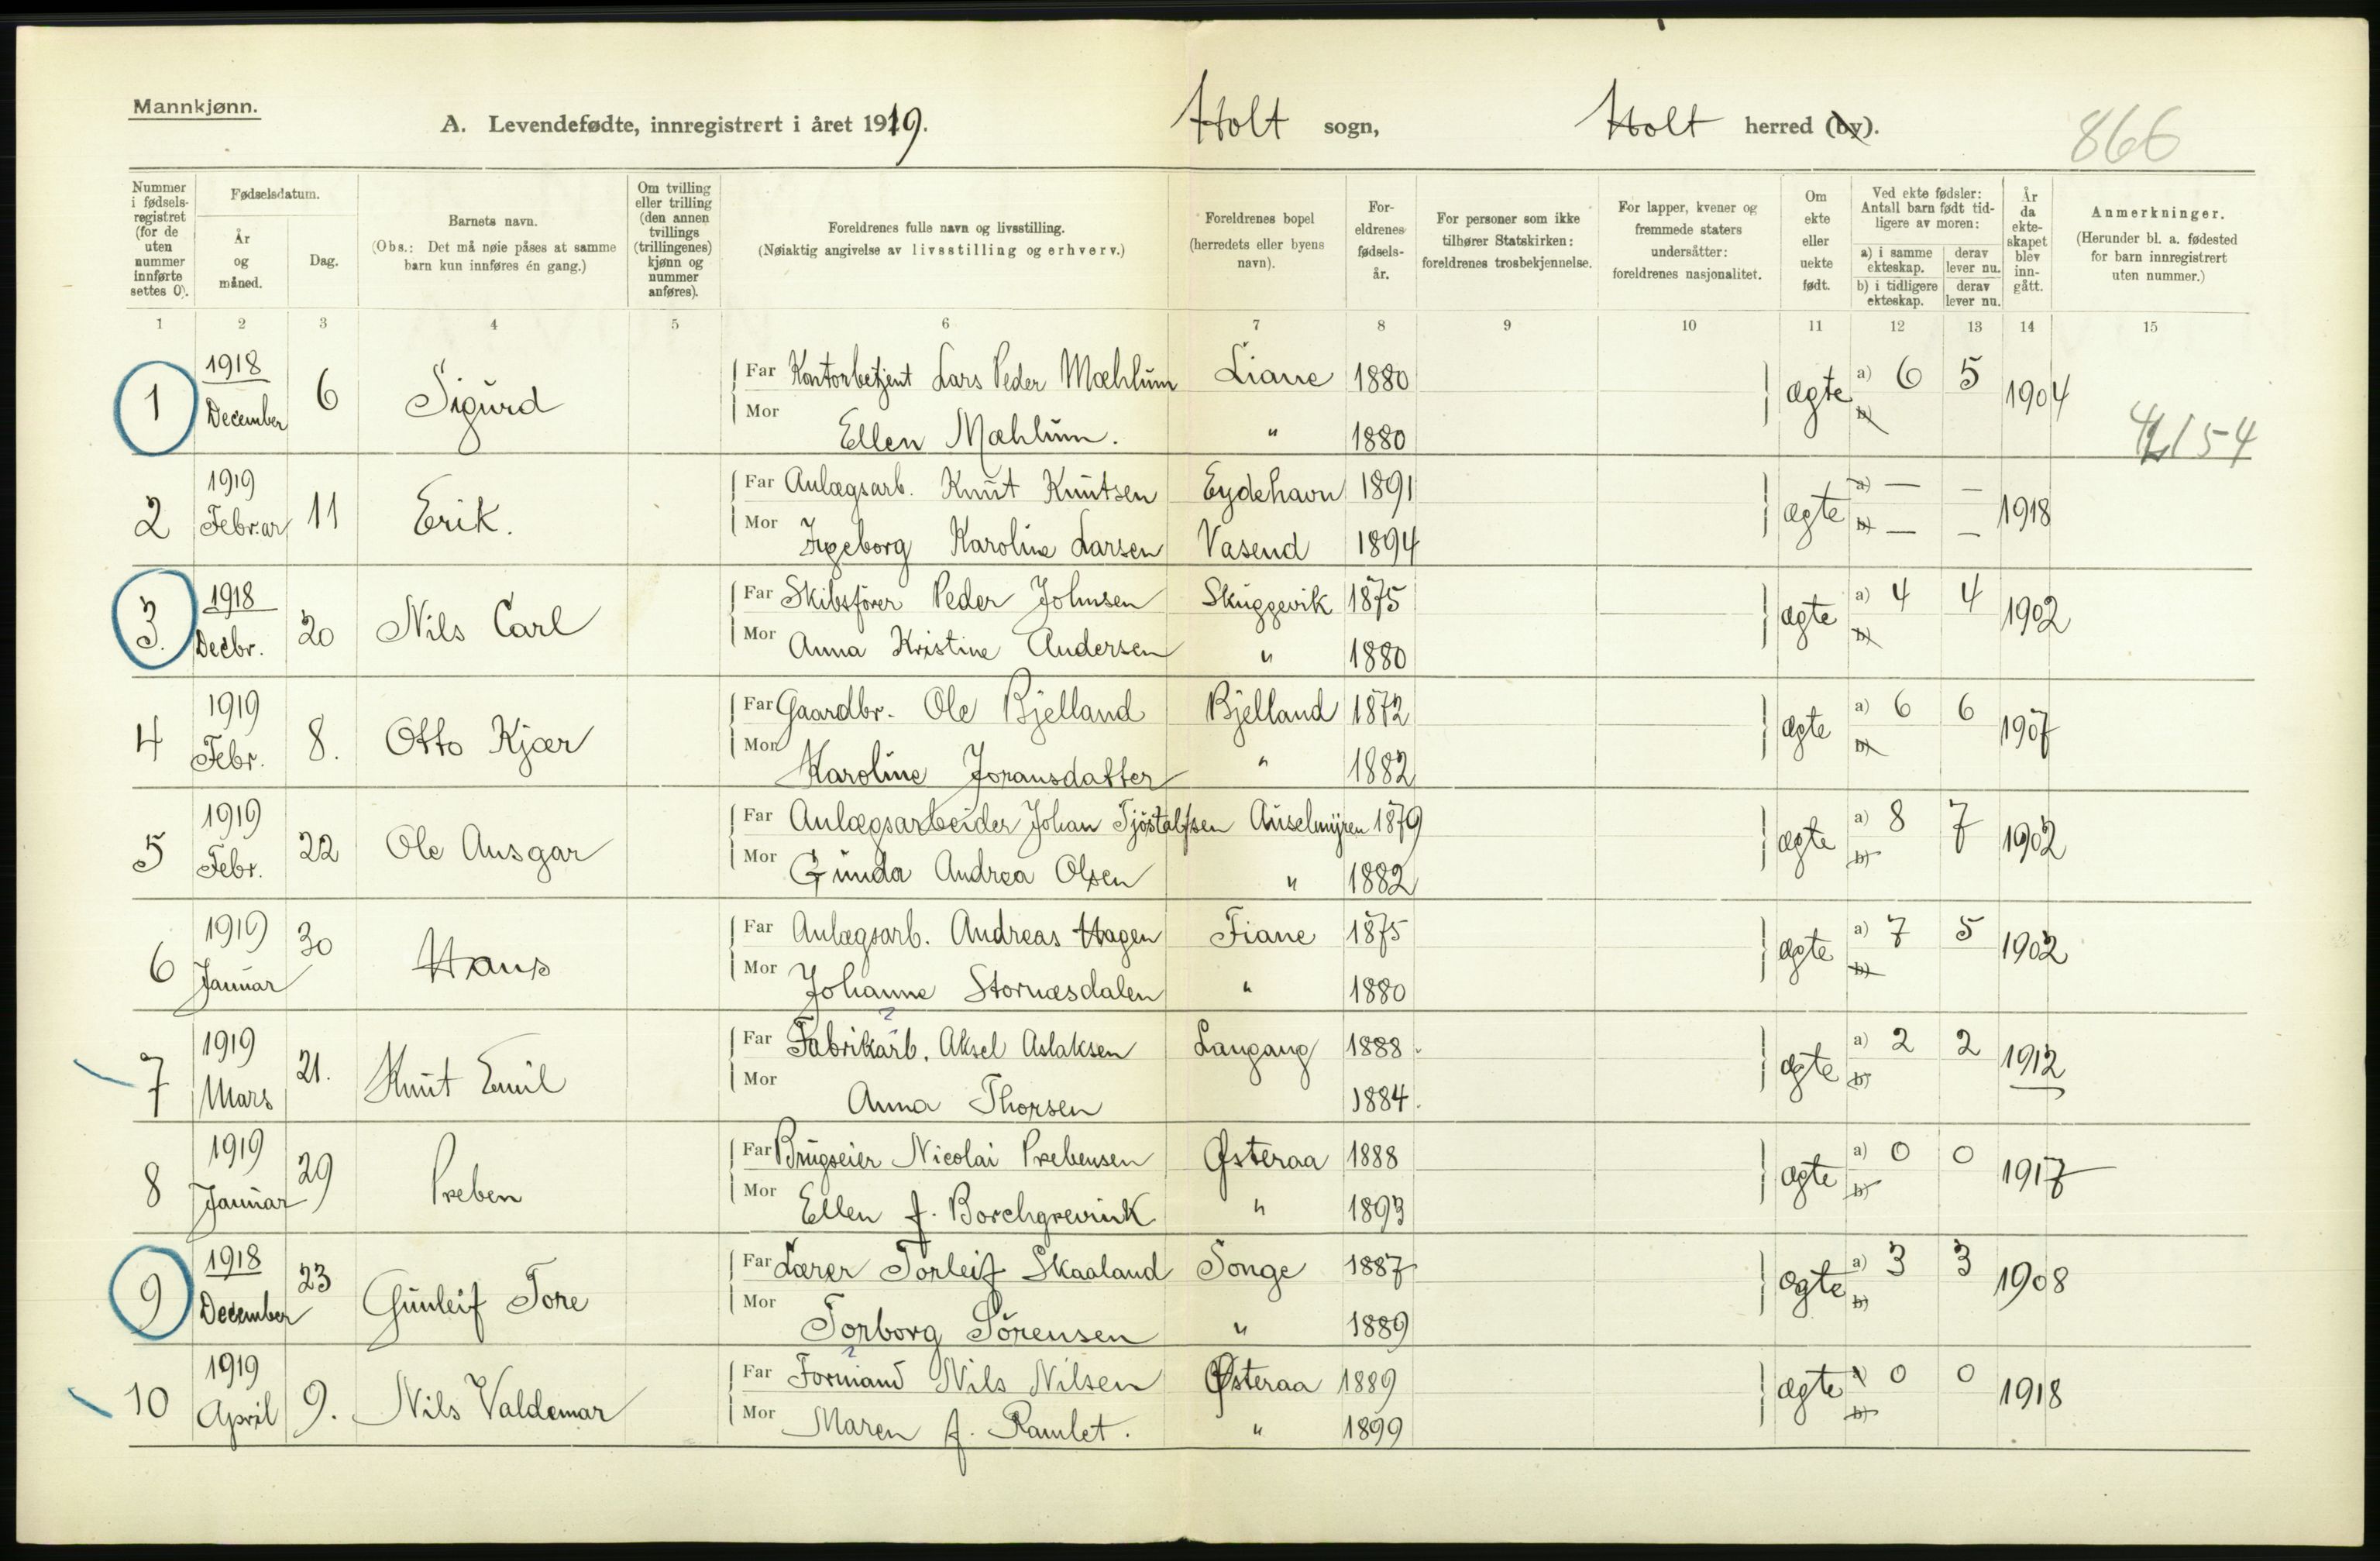 Mannkjønn.
A. Levendefødte, innregistrert i året 1919. Holt sogn, Holt herred (by). 866
Nummer i fødsels-registret (for de uten nummer innførte settes 0).
Fødselsdatum.
År og måned.
Dag.
Barnets navn.
(Obs.: Det må nøie påses at samme barn kun innføres én gang.)
Om tvilling eller trilling (den annen tvillings (trillingenes) kjønn og nummer anføres).
Foreldrenes fulle navn og livsstilling.
(Nøiaktig angivelse av livsstilling og erhverv.)
Foreldrenes bopel (herredets eller byens navn).
For-eldrenes fødsels-år.
For personer som ikke tilhører Statskirken: foreldrenes trosbekjennelse.
For lapper, kvener og fremmede staters undersåtter: foreldrenes nasjonalitet.
Om ekte eller uekte født.
Ved ekte fødsler: Antall barn født tid-ligere av moren:
a) i samme ekteskap. derav lever nu.
b) i tidligere ekteskap. derav lever nu.
År da ekte-skapet blev inn-gått.
Anmerkninger.
(Herunder bl. a. fødested for barn innregistrert uten nummer.)
1 2 3 4 5 6 7 8 9 10 11 12 13 14 15
1 1918 December 6 Sigurd Far Kontorbetjent Lars Peder Mæhlum Liane 1880 ægte a) 6 5 1904
Mor Ellen Mæhlum. " 1880 b)
4154
2 1919 Februar 11 Erik. Far Anlægsarb. Knut Knutsen Eydehavn 1891 ægte a) — — 1918
Mor Ingeborg Karoline Larsen Vasend 1894 b) — —
3. 1918 Decbr. 20 Nils Carl Far Skibsfører Peder Johnsen Skuggevik 1875 ægte a) 4 4 1902
Mor Anna Kristine Andersen " 1880 b)
4 1919 Febr. 8. Otto Kjær Far Gaardbr. Ole Bjelland Bjelland 1872 ægte a) 6 6 1907
Mor Karoline Joransdatter " 1882 b)
5 1919 Febr. 22 Ole Ansgar Far Anlægsarbeider Johan Tjöstalfsen Auselmyren 1879 ægte a) 8 7 1902
Mor Gunda Andrea Olsen " 1882 b)
6 1919 Januar 30 Hans Far Anlægsarb. Andreas Hagen Fiane 1875 ægte a) 7 5 1902
Mor Johanne Stornæsdalen " 1880 b)
7 1919 Mars 21. Knut Emil Far Fabrikarb. Aksel Aslaksen Langang 1888 ægte a) 2 2 1912
Mor Anna Thorsen 1884. b)
8 1919 Januar 29 Preben Far Brugseier Nicolai Prebensen Østeraa 1888 ægte a) 0 0 1917
Mor Ellen f. Borchgrevink " 1893 b)
9 1918 December 23 Gunleif Tore Far Lærer Torleif Skaaland Songe 1887 ægte a) 3 3 1908
Mor Torborg Sörensen " 1889 b)
10 1919 April 9. Nils Valdemar Far Formand Nils Nilsen Østeraa 1889 ægte a) 0 0 1918
Mor Maren f. Ramlet. " 1899 b)